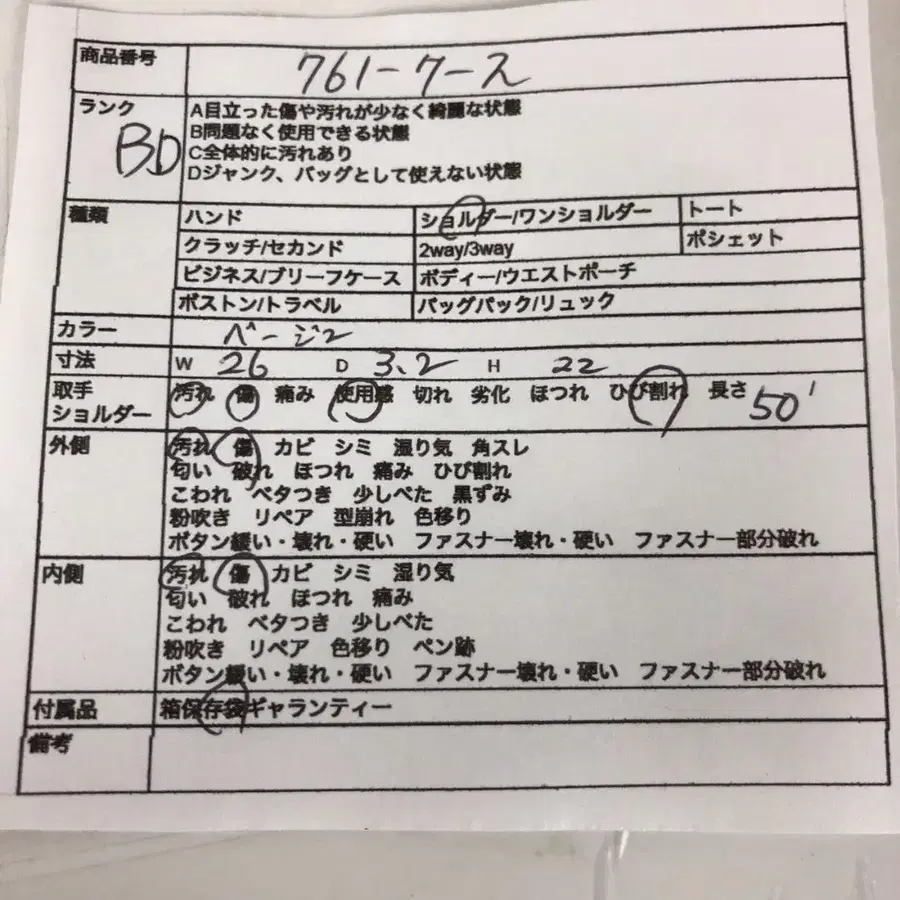 商品番号 761-ケース
ランク BD
A目立った傷や汚れが少なく綺麗な状態
B問題なく使用できる状態
C全体的に汚れあり
Dジャンク、バッグとして使えない状態
種類 ハンド ショルダー/ワンショルダー トート
クラッチ/セカンド 2way/3way ポシェット
ビジネス/ブリーフケース ボディー/ウエストポーチ
ボストン/トラベル バッグパック/リュック
カラー ベージュ
寸法 W 26 D 3.2 H 22
取手 汚れ 傷 痛み 使用感 切れ 劣化 ほつれ ひび割れ 長さ 50
ショルダー
外側 汚れ 傷 カビ シミ 湿り気 角スレ
匂い 破れ ほつれ 痛み ひび割れ
こわれ ベタつき 少しべた 黒ずみ
粉吹き リペア 型崩れ 色移り
ボタン緩い・壊れ・硬い ファスナー壊れ・硬い ファスナー部分破れ
内側 汚れ 傷 カビ シミ 湿り気
匂い 破れ ほつれ 痛み
こわれ ベタつき 少しべた
粉吹き リペア 色移り ペン跡
ボタン緩い・壊れ・硬い ファスナー壊れ・硬い ファスナー部分破れ
付属品 箱保存袋ギャランティー
備考